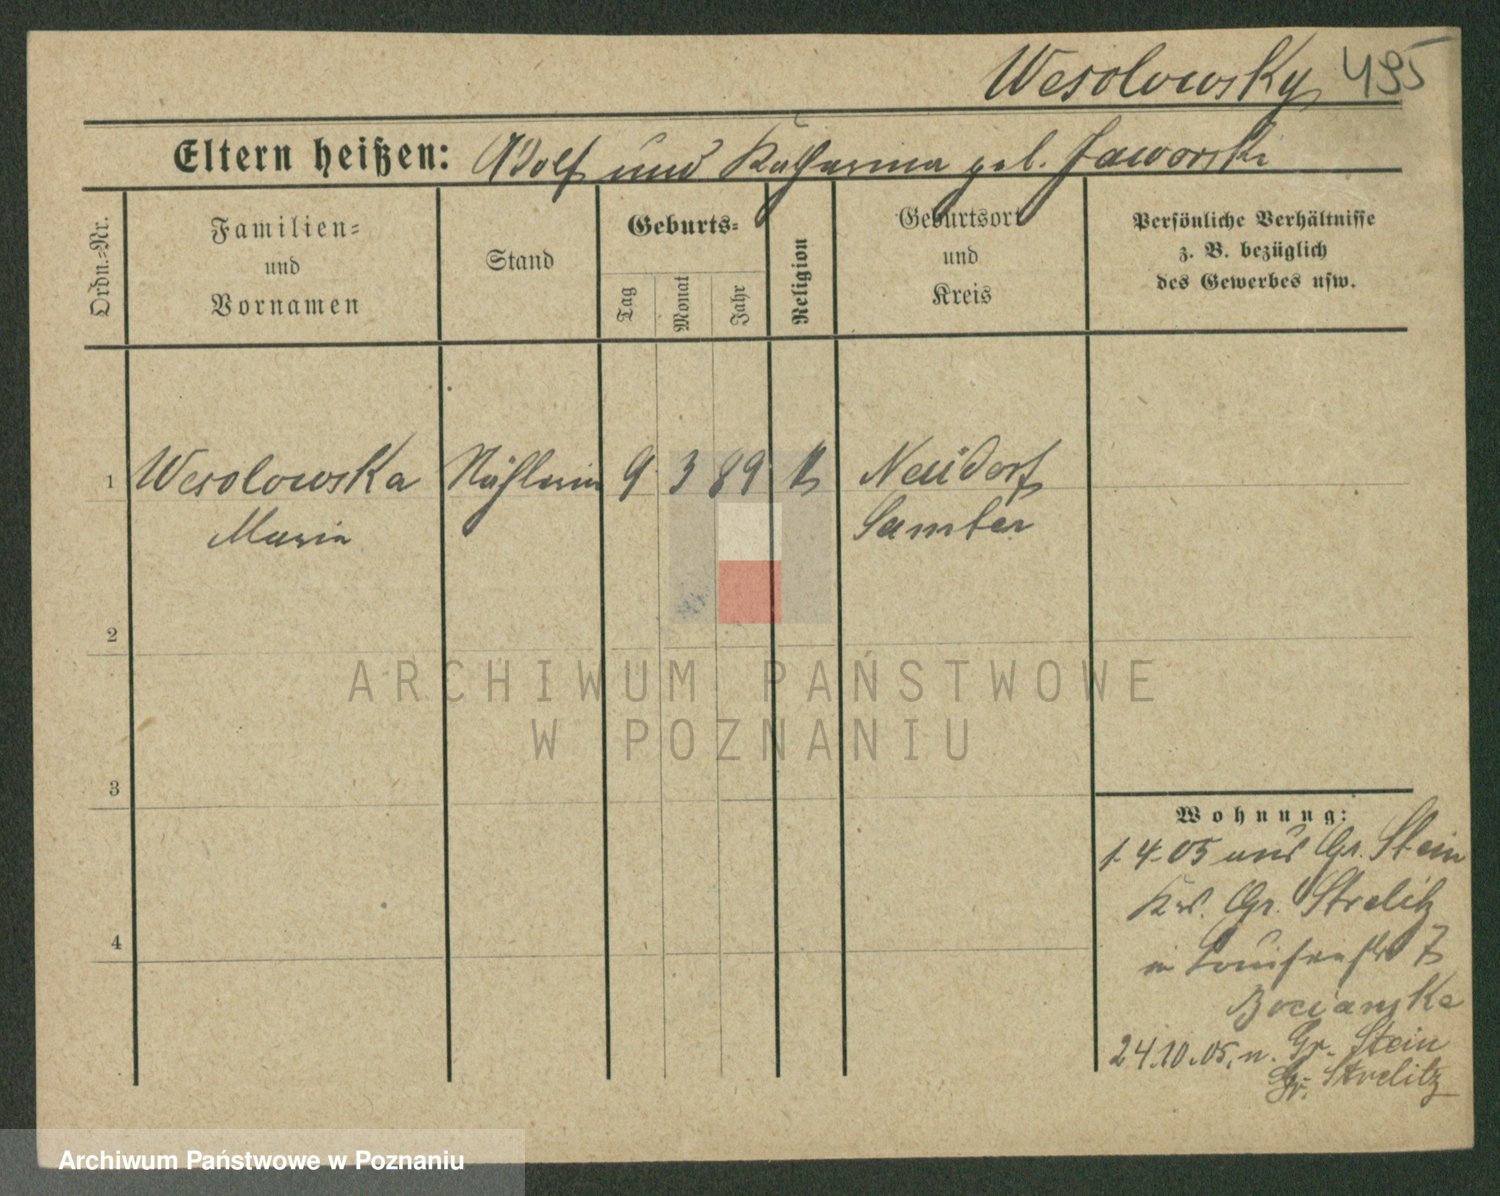 Wesolowsky 495
Eltern heißen: Adolf und Katharina geb. Jaworski
Ordn.-Nr.
Familien-
und
Vornamen
Stand
Geburts-
Tag
Monat
Jahr
Religion
Geburtsort
und
Kreis
Persönliche Verhältnisse
z. B. bezüglich
des Gewerbes usw.
1 Wesolowska 9 3 89 k Neudorf
Maria Samter
2
3
4
Wohnung:
1.4.05 aus Gr. Stein
Krs. Gr. Strelitz
in Louisenstr 7
Bocianska
24.10.05. n. Gr. Stein
Gr. Strelitz
ARCHIWUM PAŃSTWOWE
W POZNANIU
Archiwum Państwowe w Poznaniu